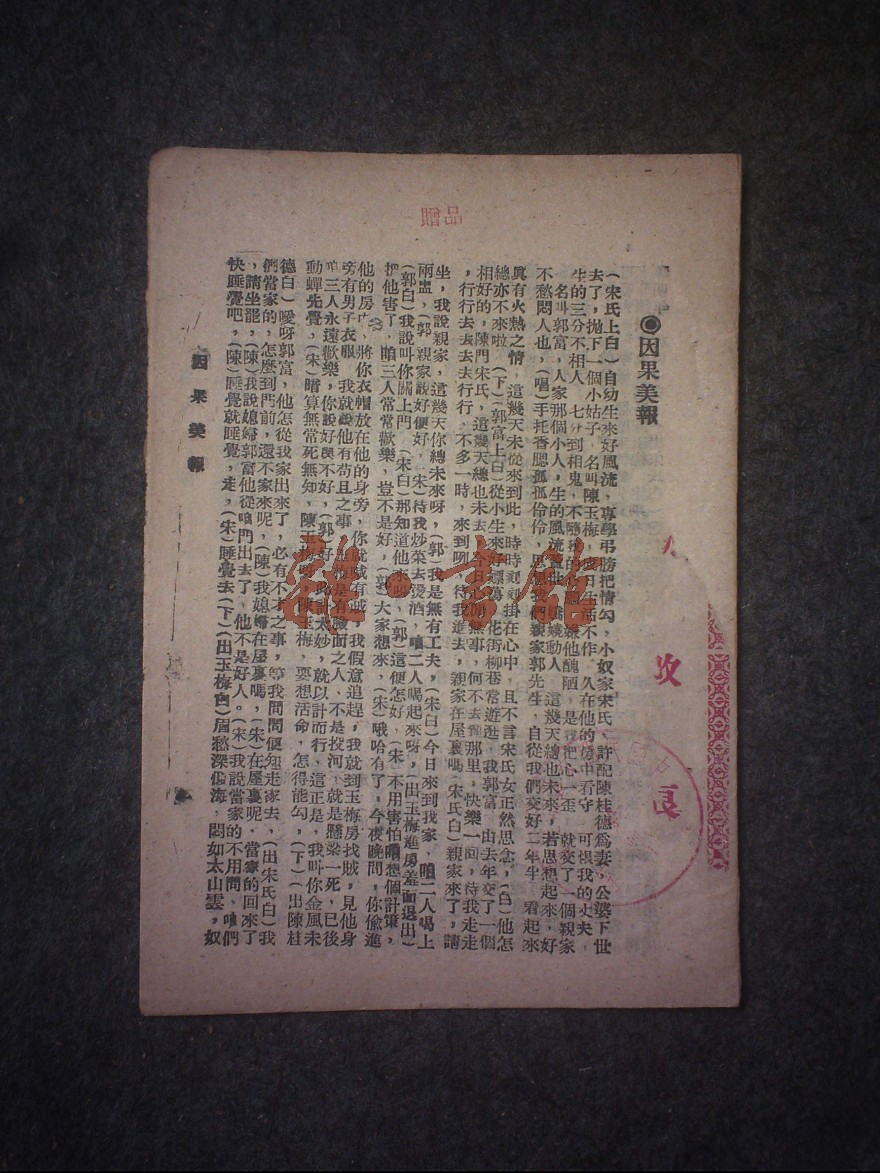 品贈
◉因果美報
(宋氏上白)自幼生來好風流,專學弔膀把情勾,小奴家宋氏,許配陳桂德爲妻,公婆下世
去了,拋下一個小姑子,名叫陳玉梅,
生的三分不相人,七分到相鬼,不隨
名叫郭富,人家那個小人,生的風流
不愁悶人也,(唱)手托香腮孤孤伶伶,思想我們親家郭先生,自從我們交好二年半,看起來
眞有火熱之情,這幾天未從來到此,時時刻刻掛在心中,且不言宋氏女正然思念,(白)他怎
總亦不來啦,(下)(郭富上白)從小生來好飄蕩,花街柳巷常遊逛,我郭富,由去年交了一個
相好的,陳門宋氏,這幾天總也未去,今日心閒無事,何不去到那里,快樂一回,待我走走
,行行去去去行行,不多一時,來到咧,待我進去,親家在屋裏嗎,(宋氏白)親家來了,請
坐,我說親家,這幾天你總未來呀,(郭)我是無有工夫,(宋白)今日來到我家,咱二人喝上
兩盅,(郭)親家說好便好,(宋)待我炒菜去燙酒,咱二人喝起來呀,(出玉梅進房羞面退出)
(郭白)我說叫你關上門,(宋白)那知道他來呀,(郭)這便怎好,(宋)不用害怕咱想個計策,
把他害了,咱三人常常歡樂,豈不是好,(郭)大家想來,(宋)哦哈有了,今夜晚間,你偷進
他的房中,將你衣帽放在他的身旁,你就喊有賊,我假意追趕,我就到玉梅房找賊,見他身
旁有男子衣服,我就說他有苟且之事,玉梅是有臉面之人,不是投河,就是懸梁一死,已後
咱三人永遠歡樂,你說好與不好,(郭)好,此計太妙,就以計而行,這正是,我叫你金風未
動蟬先覺,(宋)暗算無常死無知,陳玉梅呀,陳玉梅,要想活命,怎得能勾,(下)(出陳桂
德白)噯呀郭富,他怎從我家出來了,必有不才之事,等我問問便知走家去,(出宋氏白)我
們當家的,怎麼到門前,還不家來呢,(陳)我媳婦在屋裏嗎,(宋)在屋裏呢,當家的回來了
,請坐罷,(陳)我說媳婦郭富他從咱門出去了,他不是好人。(宋)我說當家的不用問,咱們
快睡覺吧,(陳)睡覺就睡覺,走,(宋)睡覺去(下)(出玉梅白)眉愁深似海,悶如太山雲,奴
因果美報
雜·書館